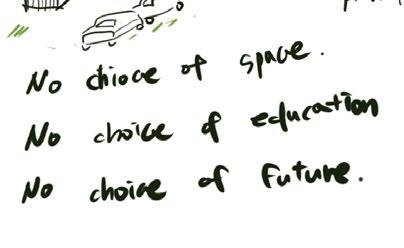 No chioce of space.
No choice of education
No choice of future.